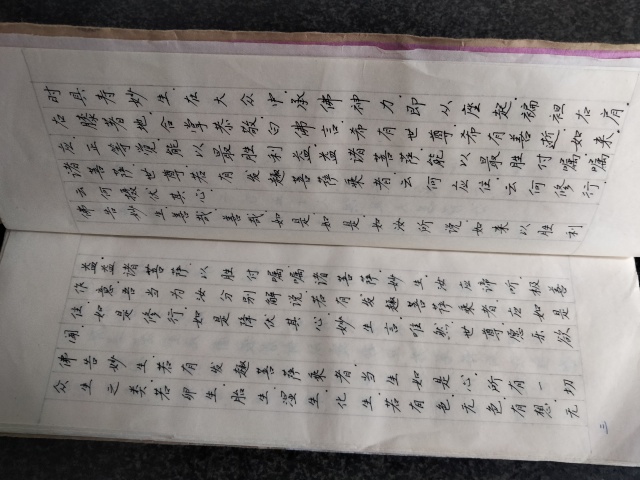 时具寿妙生.在大众中.承佛神力.即从座起.褊袒右肩.
右膝著地.合掌恭敬.白佛言.希有世尊.希有善逝.如来.
应正等觉.能以最胜利益.益诸菩萨.能以最胜付嘱.嘱
诸菩萨.世尊.若有发趣菩萨乘者.云何应住.云何修行.
云何摄伏其心.
佛告妙生.善哉.善哉.如是.如是.如汝所说.如来以胜利
益.益诸菩萨.以胜付嘱.嘱诸菩萨.妙生.汝应谛听.极善
作意.吾当为汝分别解说.若有发趣菩萨乘者.应如是
住.如是修行.如是降伏其心.妙生言.唯然.世尊.愿乐欲
闻.
佛告妙生.若有发趣菩萨乘者.当生如是心.所有一切
众生之类.若卵生.胎生.湿生.化生.若有色.无色.有想.无
三